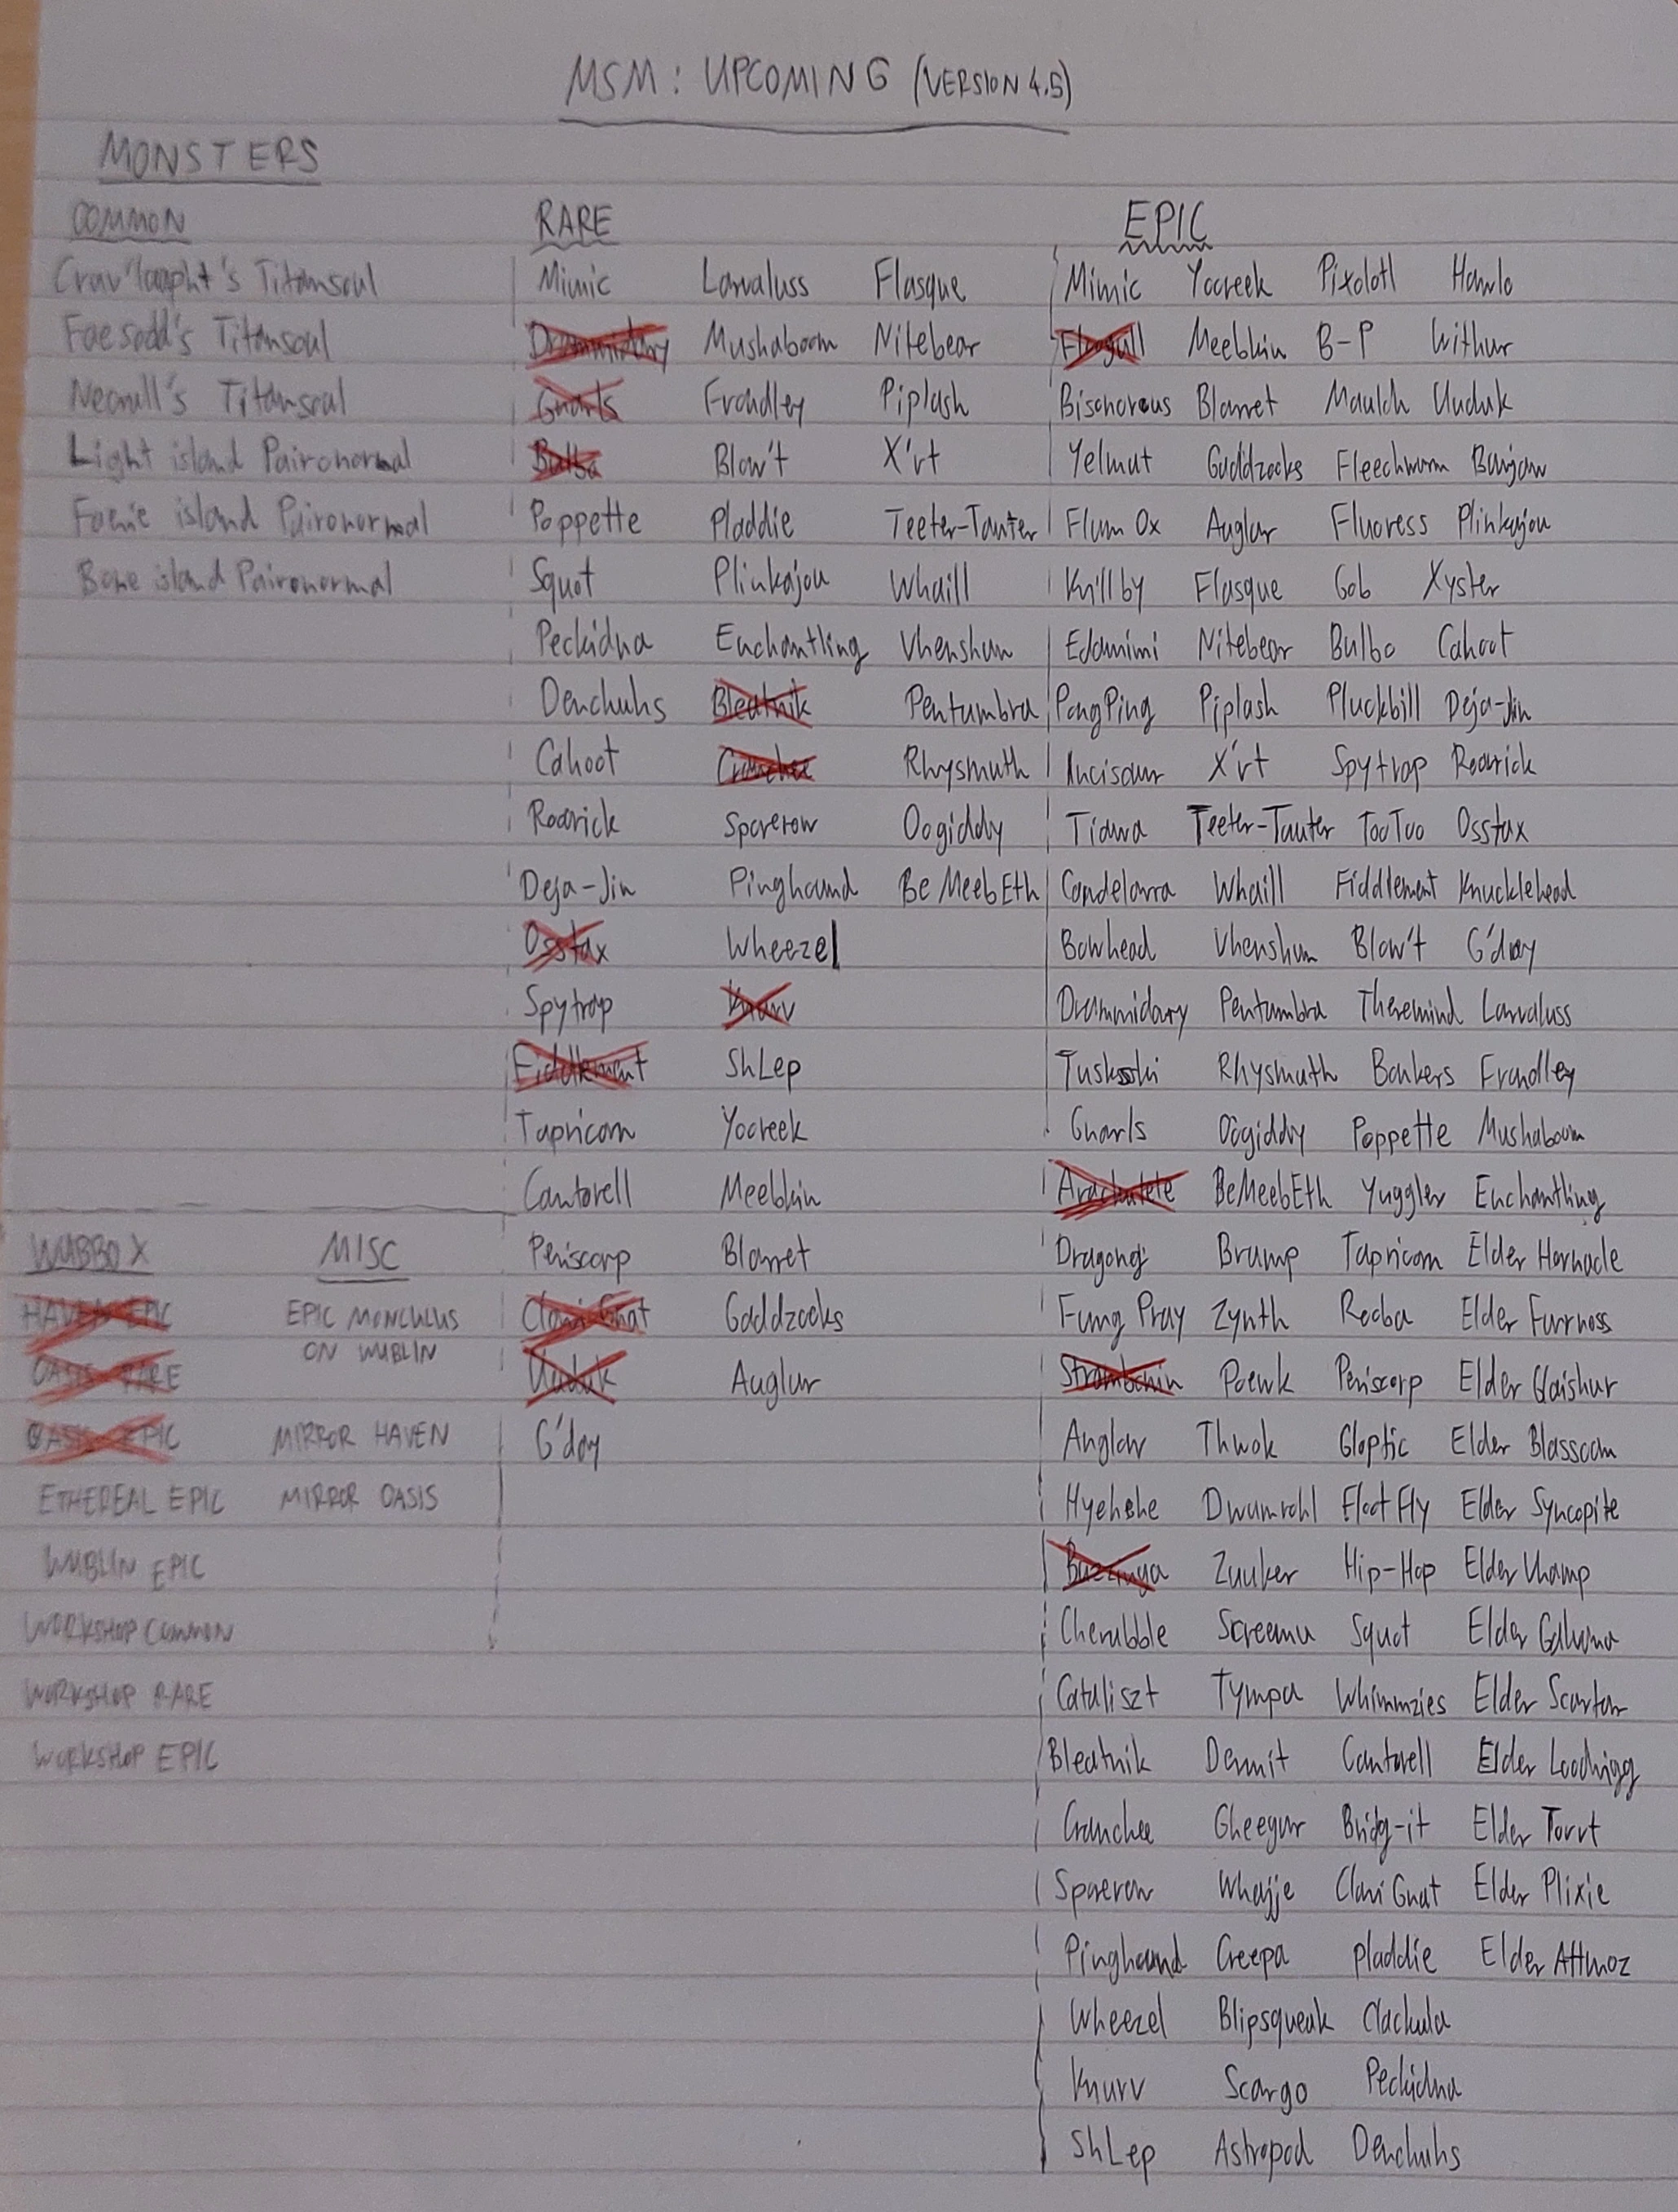 MSM: UPCOMING (VERSION 4.5)
MONSTERS
COMMON RARE EPIC
Crav'laapht's Titansoul Mimic Larvaluss Flasque Mimic Yooreek Pixolotl Hawlo
Faesodd's Titansoul Drummidary Mushaboom Nitebear Floogull Meebkin B-P Withur
Necrull's Titansoul Gnarls Frondley Piplash Bisonorous Blarret Maulch Uuduk
Light island Paironormal Bulbo Blow't X'rt Yelmut Gaddzooks Fleechwurm Banjaw
Faerie island Paironormal Poppette Pladdie Teeter-Tauter Flum Ox Auglur Fluoress Plinkajou
Bone island Paironormal Squot Plinkajou Whaill Krillby Flasque Gob Xyster
Peckidna Enchantling Vhenshun Edamimi Nitebear Bulbo Cahoot
Denchuhs Bleatnik Pentumbra PongPing Piplash Pluckbill Deja-Jin
Cahoot Cranchee Rhysmuth Incisaur X'rt Spytrap Rooarick
Roarick Sporerow Oogiddy Tiawa Teeter-Tauter TooToo Osstax
Deja-Jin Pinghound BeMeebEth Candelavra Whaill Fiddlement Knucklehead
Osstax Wheezel Bowhead Vhenshun Blow't G'day
Spytrap Knurv Drummidary Pentumbra Theremind Larvaluss
Fiddlement ShLep Tuskski Rhysmuth Bonkers Frondley
Tapricorn Yooreek Gnarls Oogiddy Poppette Mushaboom
Cantorell Meebkin Arachnutete BeMeebEth Yuggler Enchantling
WUBBOX MISC Periscorp Blarret Dragong Brump Tapricorn Elder Hornacle
HAVEN EPIC EPIC MONCULUS Clavi Gnat Gaddzooks Fung Pray Zynth Rooba Elder Furnoss
ON WUBLIN
OASIS RARE Uuduk Auglur Strombonin Poewk Periscorp Elder Glaishur
OASIS EPIC MIRROR HAVEN G'day Anglow Thwok Gloptic Elder Blassoom
ETHEREAL EPIC MIRROR OASIS Hyehehe Dwumrohl Floot Fly Elder Syncopite
WUBLIN EPIC Buzzinga Zuuker Hip-Hop Elder Vhamp
WORKSHOP COMMON Cherubble Screemu Squot Elder Galvana
WORKSHOP RARE Cataliszt Tympa Whimmzies Elder Scaratar
WORKSHOP EPIC Bleatnik Dermit Cantorell Elder Loodvigg
Cranchee Gheegur Bridg-it Elder Torrt
Sporerow Whajje Clavi Gnat Elder Plixie
Pinghound Creepa Pladdie Elder Attmoz
Wheezel Blipsqueak Clackula
Knurv Scargo Peckidna
ShLep Astropod Denchuhs